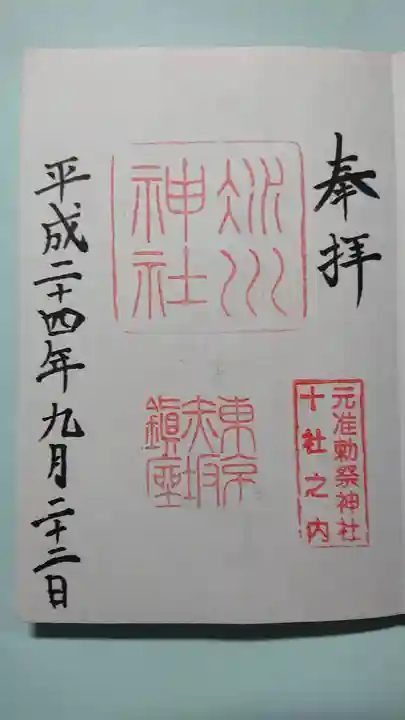 奉拝
元准勅祭神社
十社之内
氷川
神社
東京
赤坂
鎮座
平成二十四年九月二十二日